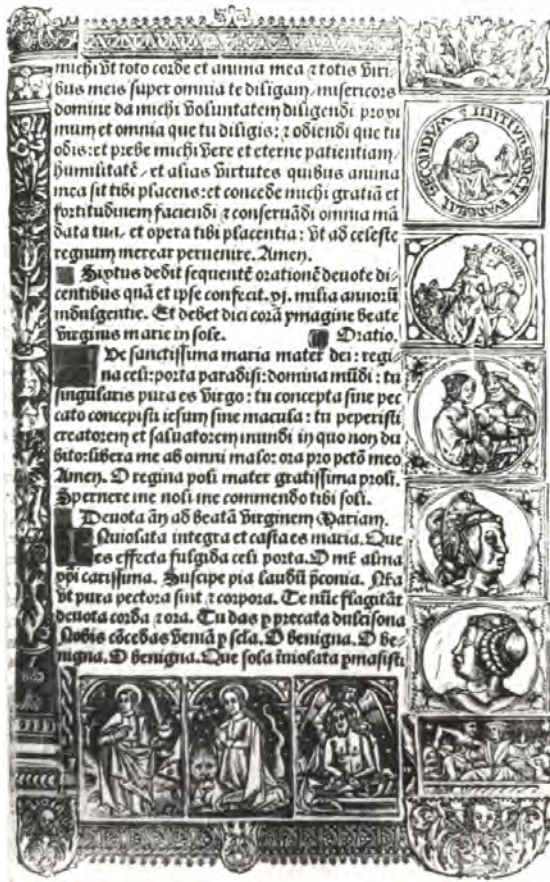 michi vt toto corde et anima mea ⁊ totis viri⸗
bus meis super omnia te diligam/ misericors
domine da michi voluntatem diligendi proxi
mum et omnia que tu diligis: ⁊ odiendi que tu
odis: et prebe michi vere et eterne patientiam/
humilitatē/ et alias virtutes quibus anima
mea sit tibi placens: et concede michi gratiā et
fortitudinem faciendi ⁊ conseruādi omnia mā
data tua/ et opera tibi placentia: vt ad celeste
regnum merear peruenire. Amen.
Sixtus dedit sequentē orationē deuote di⸗
centibus quā et ipse confecit. xj. milia annorū
indulgentie. Et debet dici corā ymagine beate
virginis marie in sole. Oratio.
Ve sanctissima maria mater dei: regi⸗
na celi: porta paradisi: domina mūdi: tu
singularis pura es virgo: tu concepta sine pec
cato concepisti iesum sine macula: tu peperisti
creatorem et saluatorem mundi in quo non du
bito: libera me ab omni malo: ora pro petō meo
Amen. O regina poli mater gratissima proli.
Spernere me noli me commendo tibi soli.
Deuota añ ad beatā virginem Mariam.
Nuiolata integra et casta es maria. Que
es effecta fulgida celi porta. O mr̄ alma
xp̄i carissima. Suscipe pia laudū p̄conia. Nr̄a
vt pura pectora sint ⁊ corpora. Te nūc flagitāt
deuota corda ⁊ ora. Tu das p precata dulcisona
Nobis cōcedas veniā p scla. O benigna. O be⸗
nigna. O benigna. Que sola īuiolata pmāsisti
SECONDVM